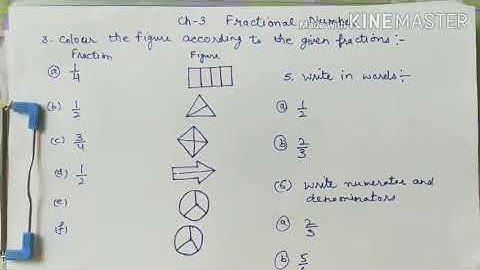 Ch-3 Fractional Number
MADE WITH KINEMASTER
3. Colour the figure according to the given fractions:-
Fraction Figure
(a) 1/4
(b) 1/2
(c) 3/4
(d) 1/2
(e)
(f)
5. Write in words:-
(a) 1/2
(b) 2/3
(6) write numerator and
denominators
(a) 2/3
(b) 5/